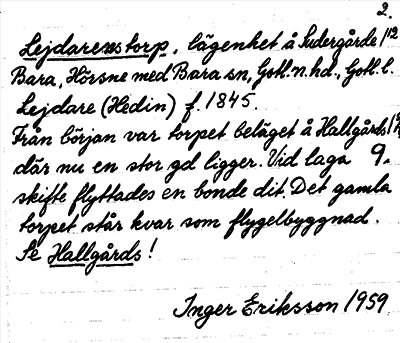 2.
Lejdarens torp, lägenhet å Sudergårde 1/12
Bara, Hörsne med Bara sn, Gotl. n. hd., Gotl. l.
Lejdare (Hedin) f. 1845.
Från början var torpet beläget å Hallgårds
där nu en stor gd ligger. Vid laga
skifte flyttades en bonde dit. Det gamla
torpet står kvar som flygelbyggnad.
Se Hallgårds!
Inger Eriksson 1959